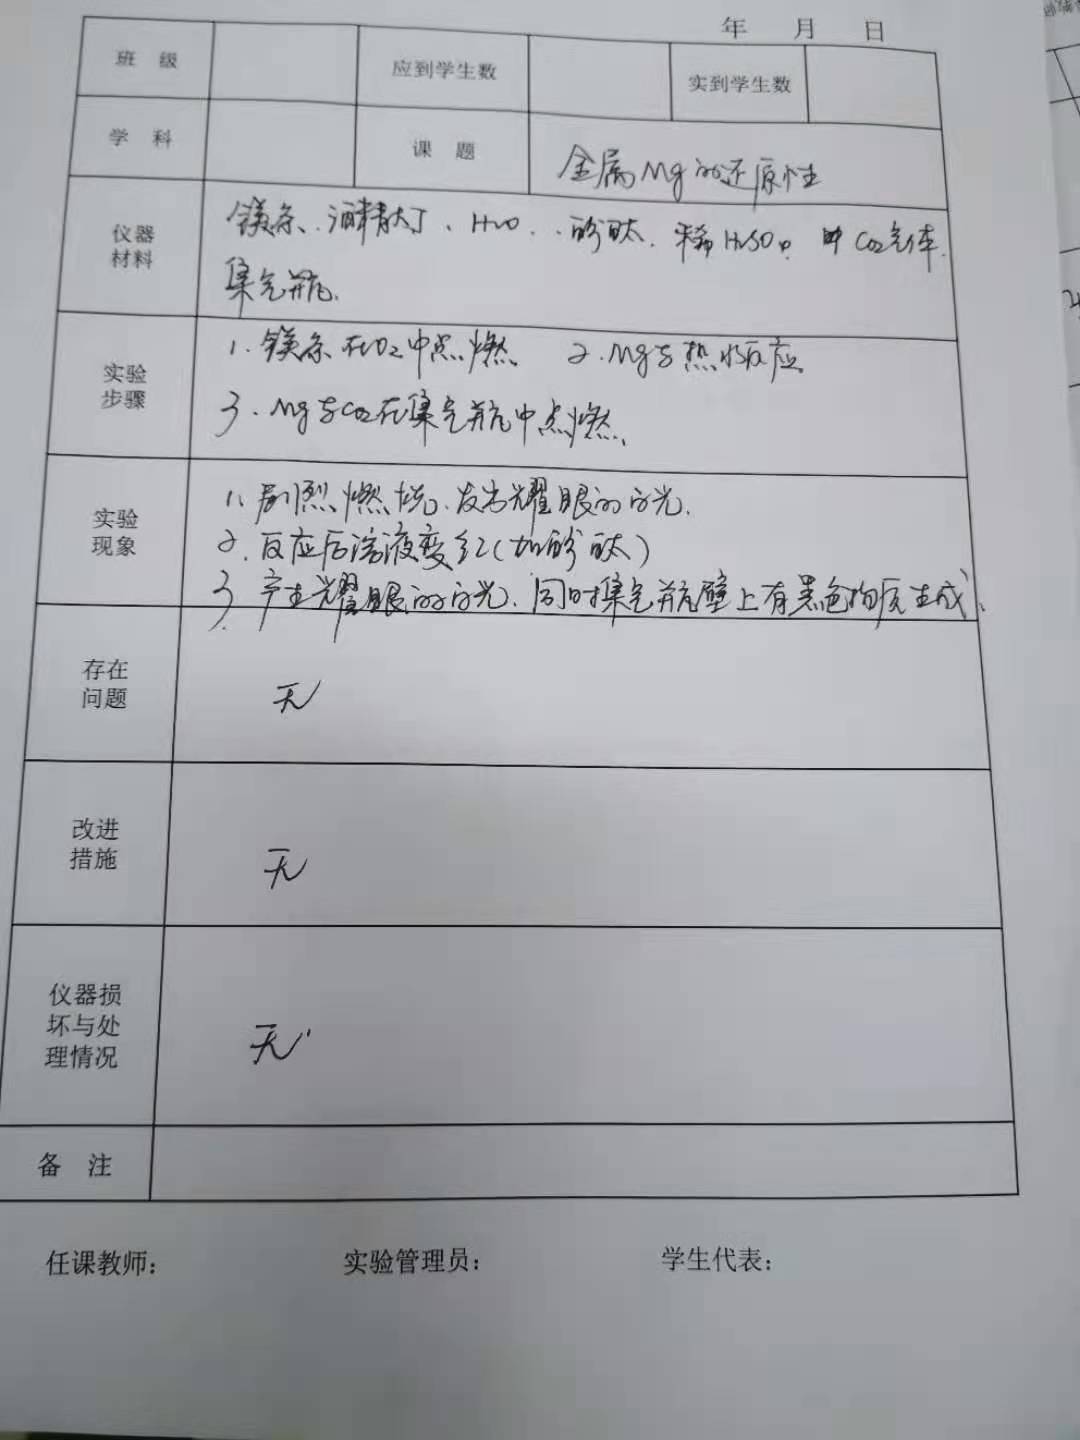 年 月 日
班 级 应到学生数 实到学生数
学 科 课 题 金属Mg的还原性
仪器材料 镁条、酒精灯、H2O、酚酞、稀H2SO4、CO2气体、
集气瓶、
实验步骤 1、镁条在O2中点燃、 2、Mg与热水反应
3、Mg与CO2在集气瓶中点燃、
实验现象 1、剧烈燃烧、发出耀眼的白光、
2、反应后溶液变红(加酚酞)
3、产生耀眼的白光、同时集气瓶壁上有黑色物质生成、
存在问题 无
改进措施 无
仪器损坏与处理情况 无
备 注
任课教师: 实验管理员: 学生代表: